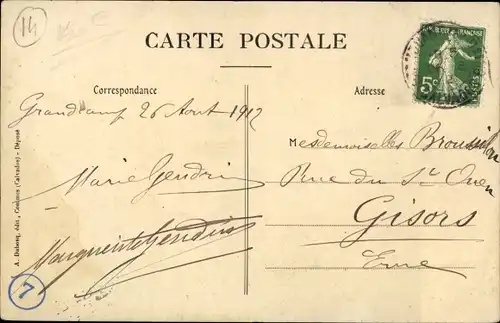 14
CARTE POSTALE
Correspondance
Adresse
REPUBLIQUE FRANÇAISE
5c
POSTES
Grandcamp 26 Aout 1912
Marie Gendrin
Marguerite Gendrin
Mesdemoiselles
Rue du St Ouen
Gisors
Eure
A. Dubosq, édit., (Calvados) - Déposé
7